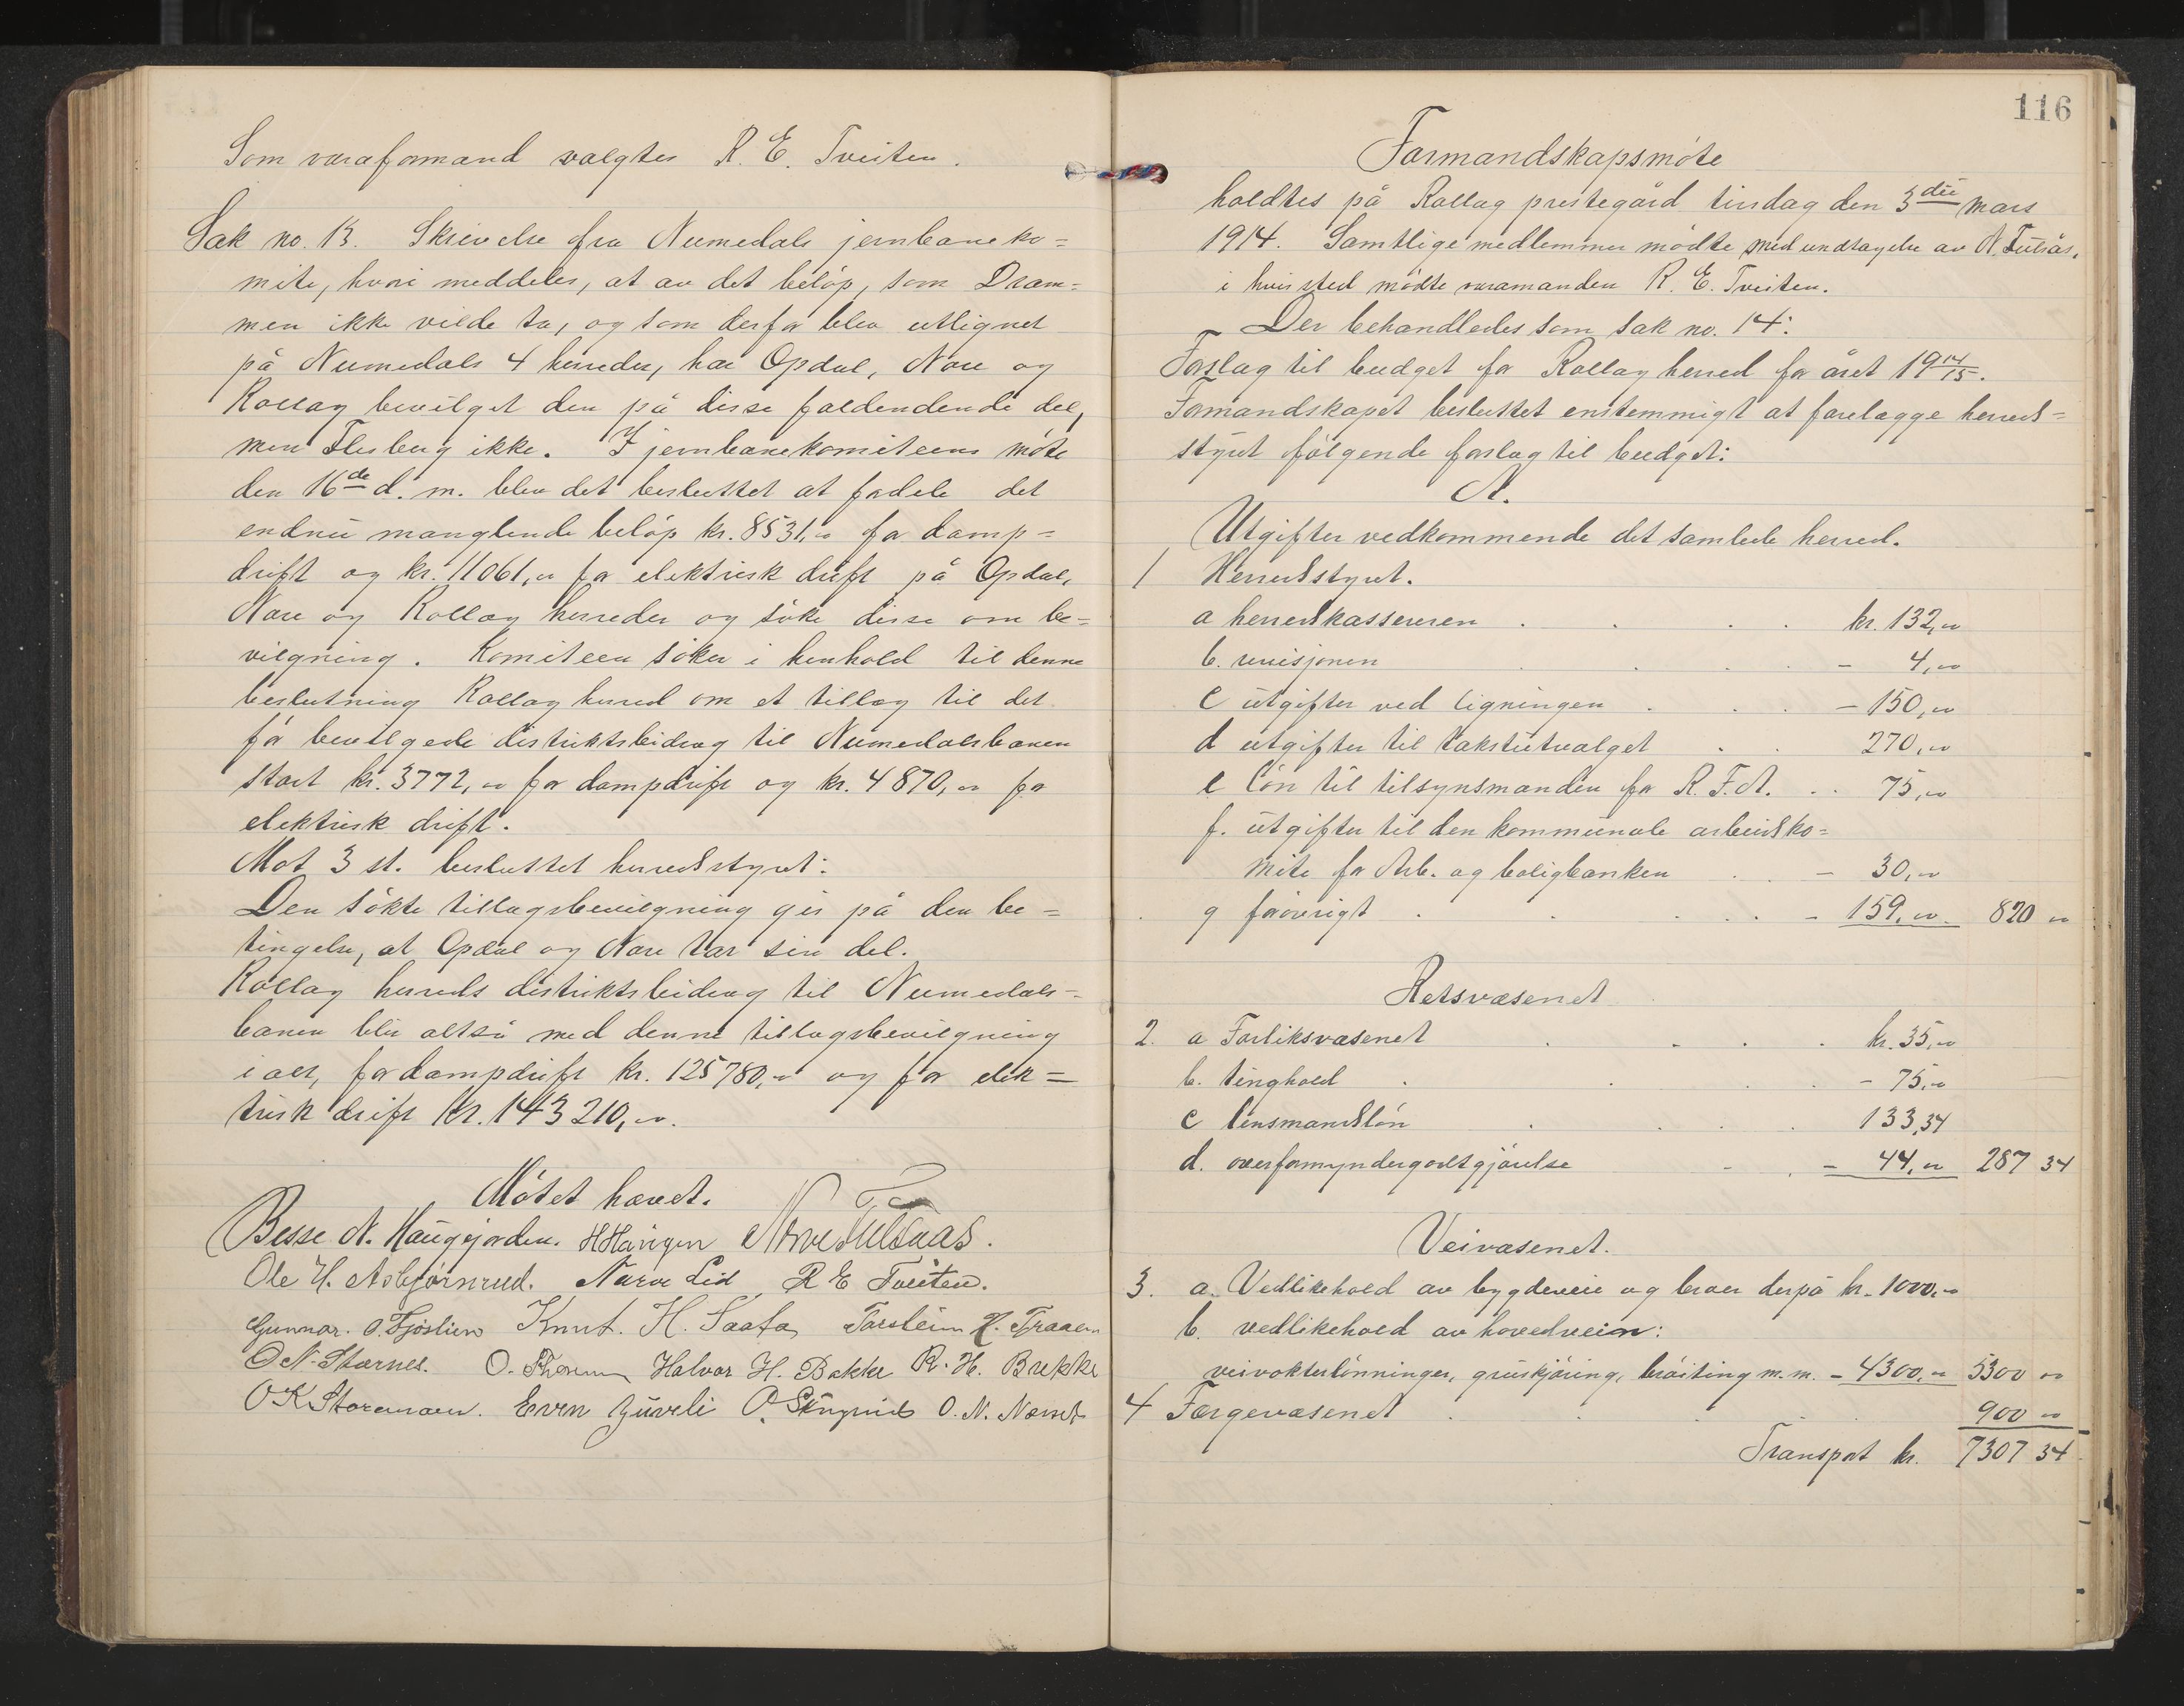 Som varaformand valgtes R. E. Tveiten.
Sak no. 13. Skrivelse fra Numedals jernbaneko=
mite, hvori meddeles, at av det beløp, som Dram=
men ikke vilde ta, og som derfor blev utlignet
på Numedals 4 herreder, har Opdal, Nore og
Rollag bevilget den på disse faldendende del,
men Flesberg ikke. I jernbanekomiteens møte
den 16de d. m. blev det besluttet at fordele det
endnu manglende beløp kr. 8531,00 for damp=
drift og kr. 11061,00 for elektrisk drift på Opdal,
Nore og Rollag herreder og søke disse om be=
vilgning. Komiteen søker i henhold til denne
beslutning Rollag herred om et tillæg til det
før bevilgede distriktsbidrag til Numedalsbanen
stort kr. 3772,00 for dampdrift og kr. 4870,00 for
elektrisk drift.
Mot 3 st. besluttet herredsstyret:
Den søkte tillægsbevilgning gis på den be=
tingelse, at Opdal og Nore tar sin del.
Rollag herreds distriktsbidrag til Numedals=
banen blir altså med denne tillægsbevilgning
i alt, for dampdrift kr. 125780,00 og for elek=
trisk drift kr. 143210,00.
Møtet hævet.
Besse N. Haugjorden. H Haugen
Ole H. Asbjørnrud. Narve Lid R E Tveiten.
Gunnar. O. Fjøslien Knut. H. Saata Torstein K. Traaen
O N. Stærnes. O. Halvor H. Bakke R. H. Brekke
O K Even Juveli O. N. Næset
116
Formandskapsmøte
holdtes på Rollag prestegård tirsdag den 3die mars
1914. Samtlige medlemmer mødte med undtagelse av N. Tulsås,
i hvis sted mødte varamanden R. E. Tveiten.
Der behandledes som sak no. 14:
Forslag til budget for Rollag herred for året 1914/15.
Formandskapet besluttet enstemmigt at forelægge herreds=
styret følgende forslag til budget:
A.
Utgifter vedkommende det samlede herred.
1 Herredsstyret.
a herredskassereren . . . . kr. 132,00
b. revisjonen . . . . - 4,00
c utgifter ved ligningen . . . - 150,00
d utgifter til takstutvalget . . 270,00
e løn til tilsynsmanden for R. F. A. . . 75,00
f. utgifter til den kommunale arbeidsko=
mite for Arb. og boligbanken . . - 30,00
g forøvrigt . . . . . - 159,00 820 00
Retsvæsenet
2. a Forliksvæsenet . . . . kr. 35,00
b. tinghold . . . . - 75,00
c lensmandsløn . . . . 133,34
d. overformyndergodtgjørelse . . - 44,00 287 34
Veivæsenet.
3. a. Vedlikehold av bygdeveie og broer derpå kr. 1000,00
b. vedlikehold av hovedveien:
veivokterlønninger, gruskjøring, brøiting m. m. - 4300,00 5300 00
4 Færgevæsenet . . . . 900 00
Transport kr. 7307 34